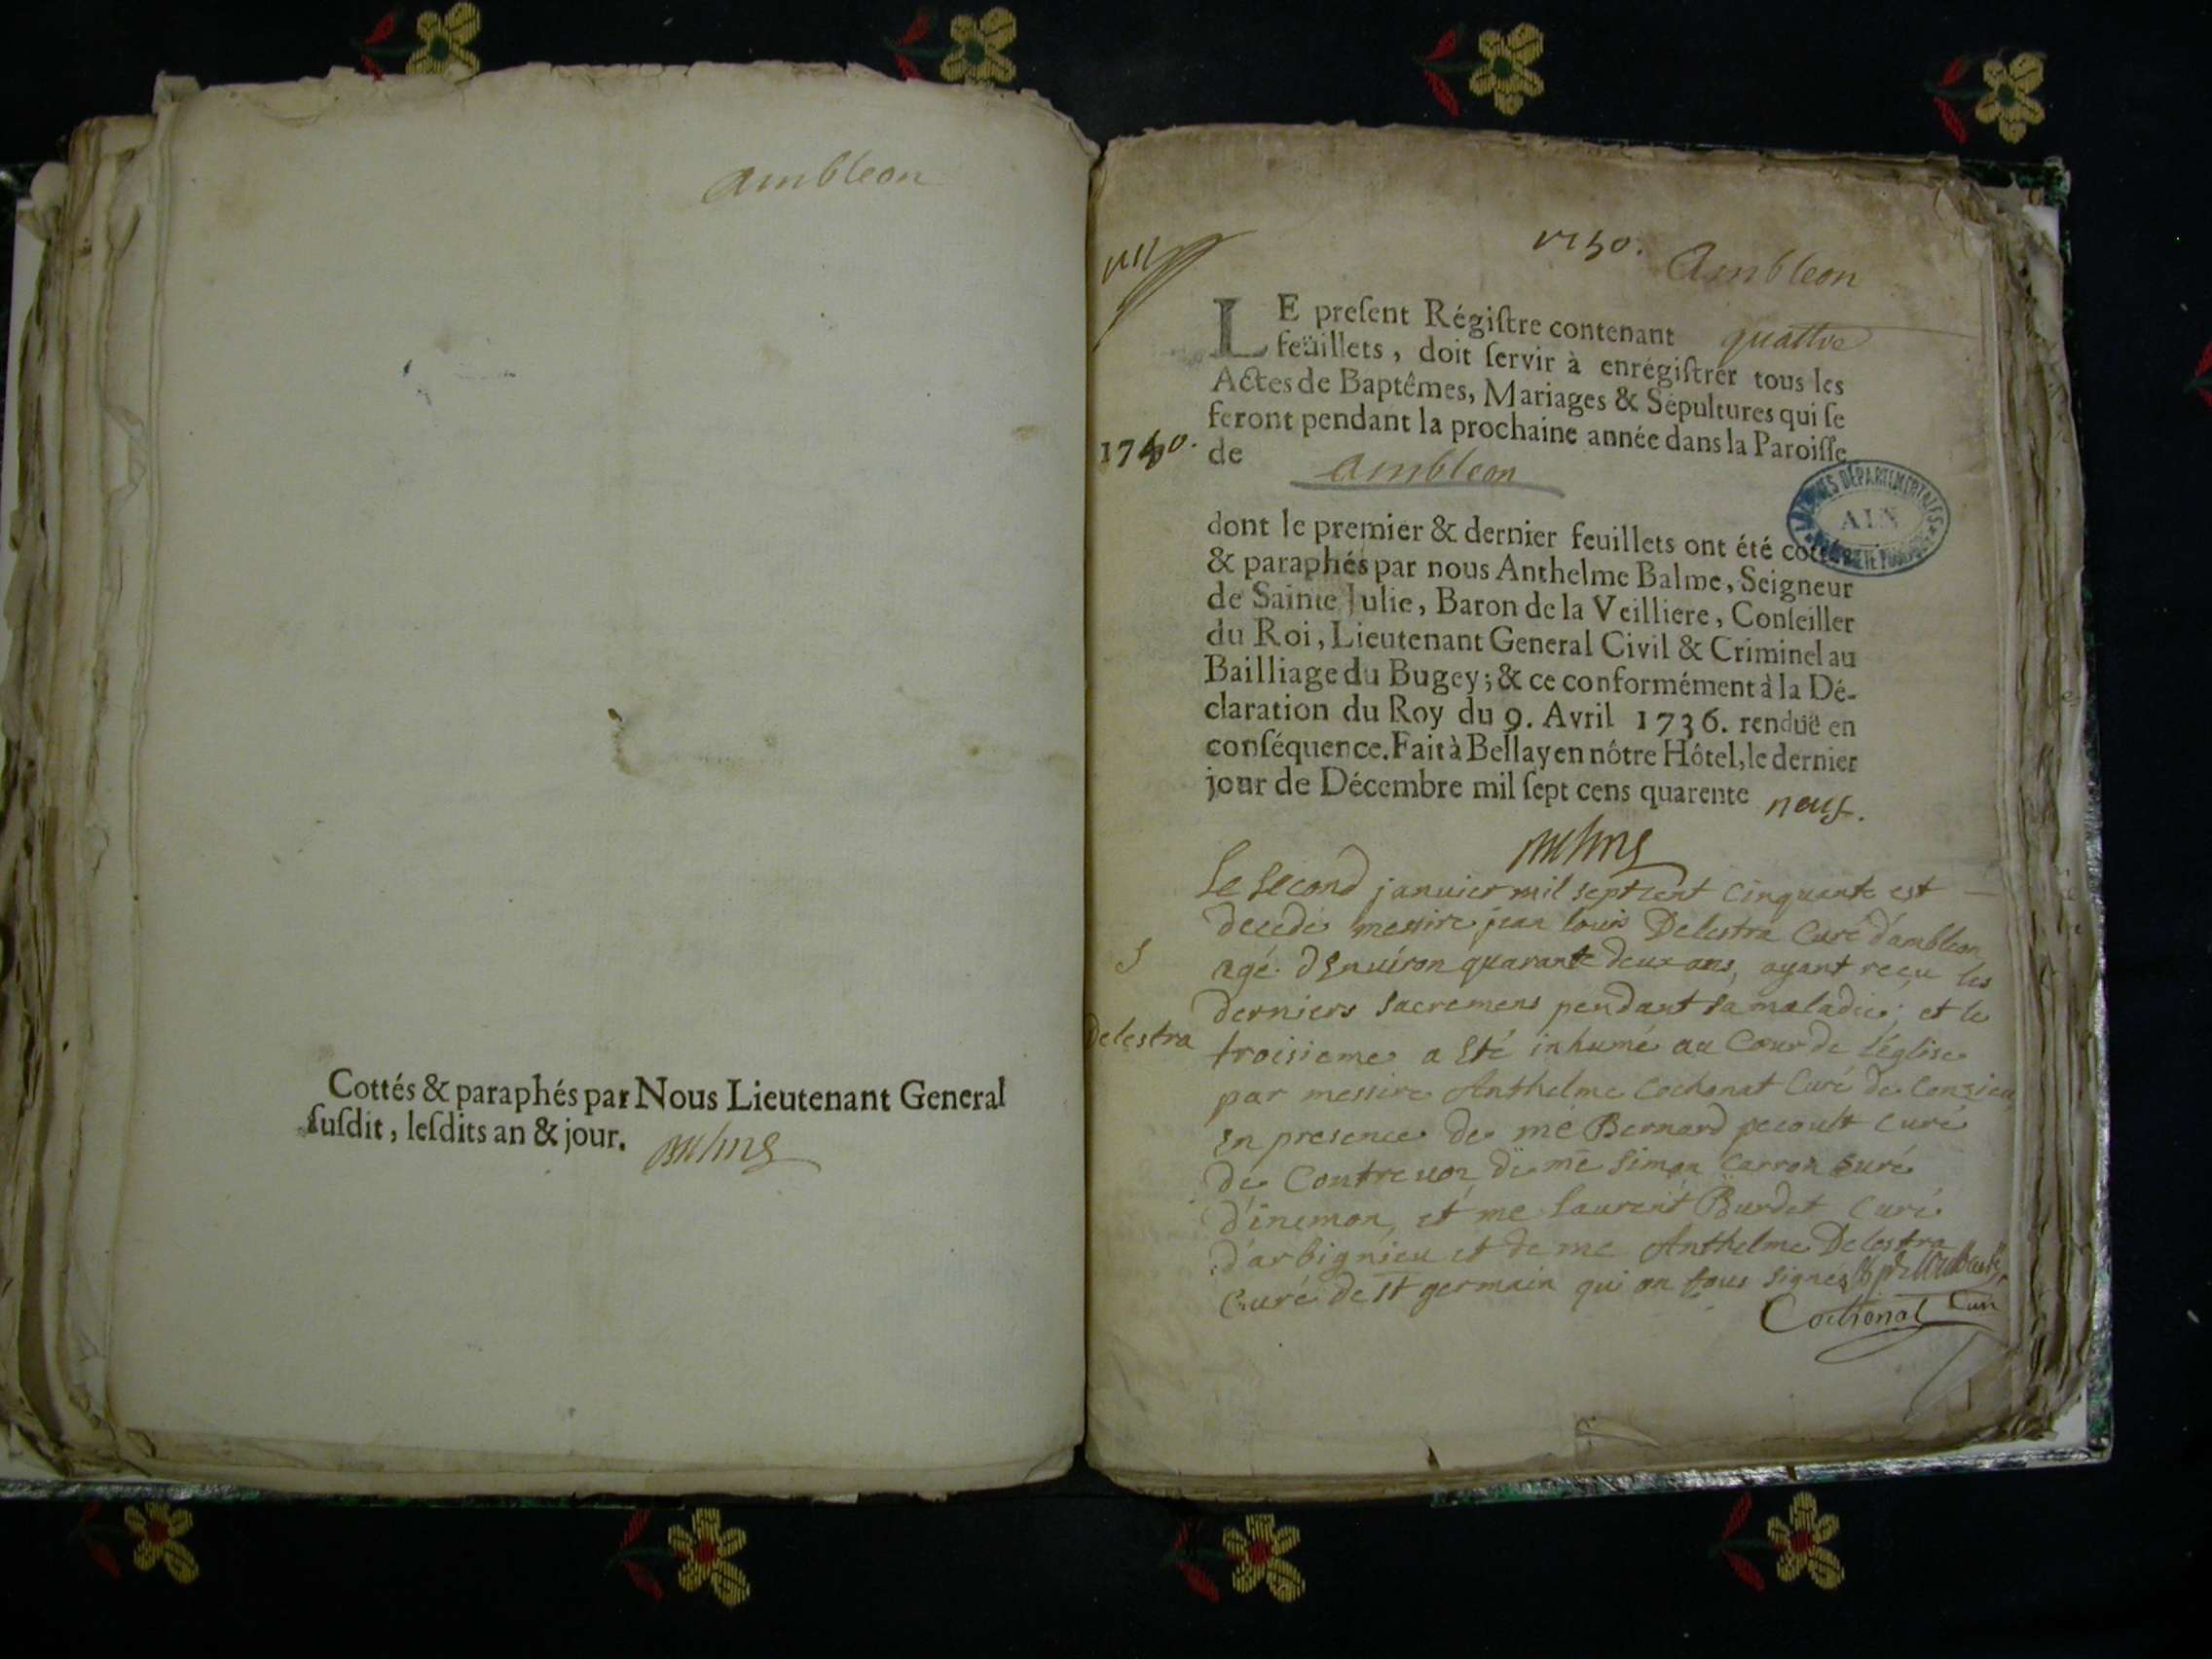 ambleon
Cottés & paraphés par Nous Lieutenant General
ſuſdit, leſdits an & jour.
1750. Ambleon
LE preſent Régiſtre contenant quattre
feüillets, doit ſervir à enrégiſtrer tous les
Actes de Baptêmes, Mariages & Sépultures qui ſe
feront pendant la prochaine année dans la Paroiſſe
1750. de ambleon
dont le premier & dernier feuillets ont été cottés
& paraphés par nous Anthelme Balme, Seigneur
de Sainte Julie, Baron de la Veilliere, Conſeiller
du Roi, Lieutenant General Civil & Criminel au
Bailliage du Bugey; & ce conformément à la Dé-
claration du Roy du 9. Avril 1736. renduë en
conſéquence. Fait à Bellay en nôtre Hôtel, le dernier
jour de Décembre mil ſept cens quarente neuf.
Le second janvier mil sept cent cinquante est
decedé messire jean louis Delestra Curé d'ambleon
S
agé d'environ quarante deux ans, ayant reçu les
derniers sacremens pendant sa maladie; et le
Delestra
troisieme a eté inhumé au Cœur de l'église
par messire Anthelme Cochonat Curé de Conzieu
en presence de me Bernard pecoult curé
de Contrevoz de me Simon Carron curé
d'inimon, et me laurent Burdet Curé
d'arbignieu et de me Anthelme Delestra
Curé de st germain qui on tous signés
Cochonat Curé
ARCHIVES DÉPARTEMENTALES
AIN